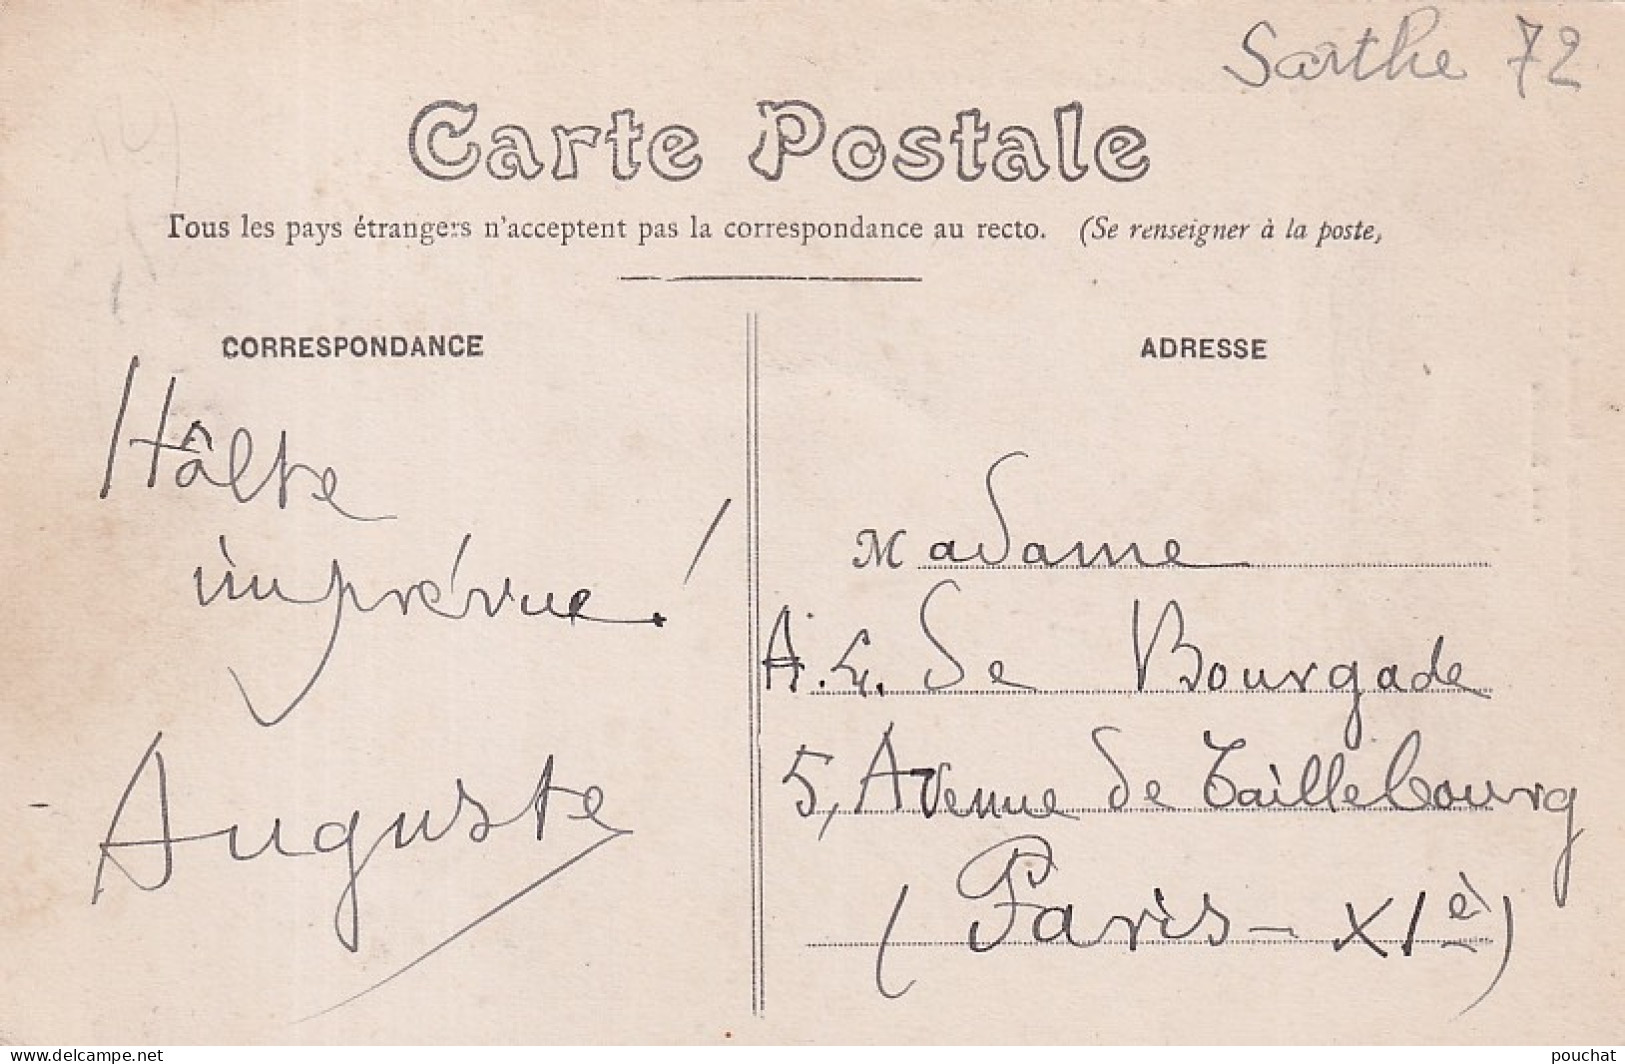 Sarthe 72
Carte Postale
Tous les pays étrangers n'acceptent pas la correspondance au recto. (Se renseigner à la poste,
CORRESPONDANCE
Hâlte
imprévue !
Auguste
ADRESSE
Madame
A. L. de Bourgade
5, Avenue de Taillebourg
(Paris - XIè)
www.delcampe.net
pouchat